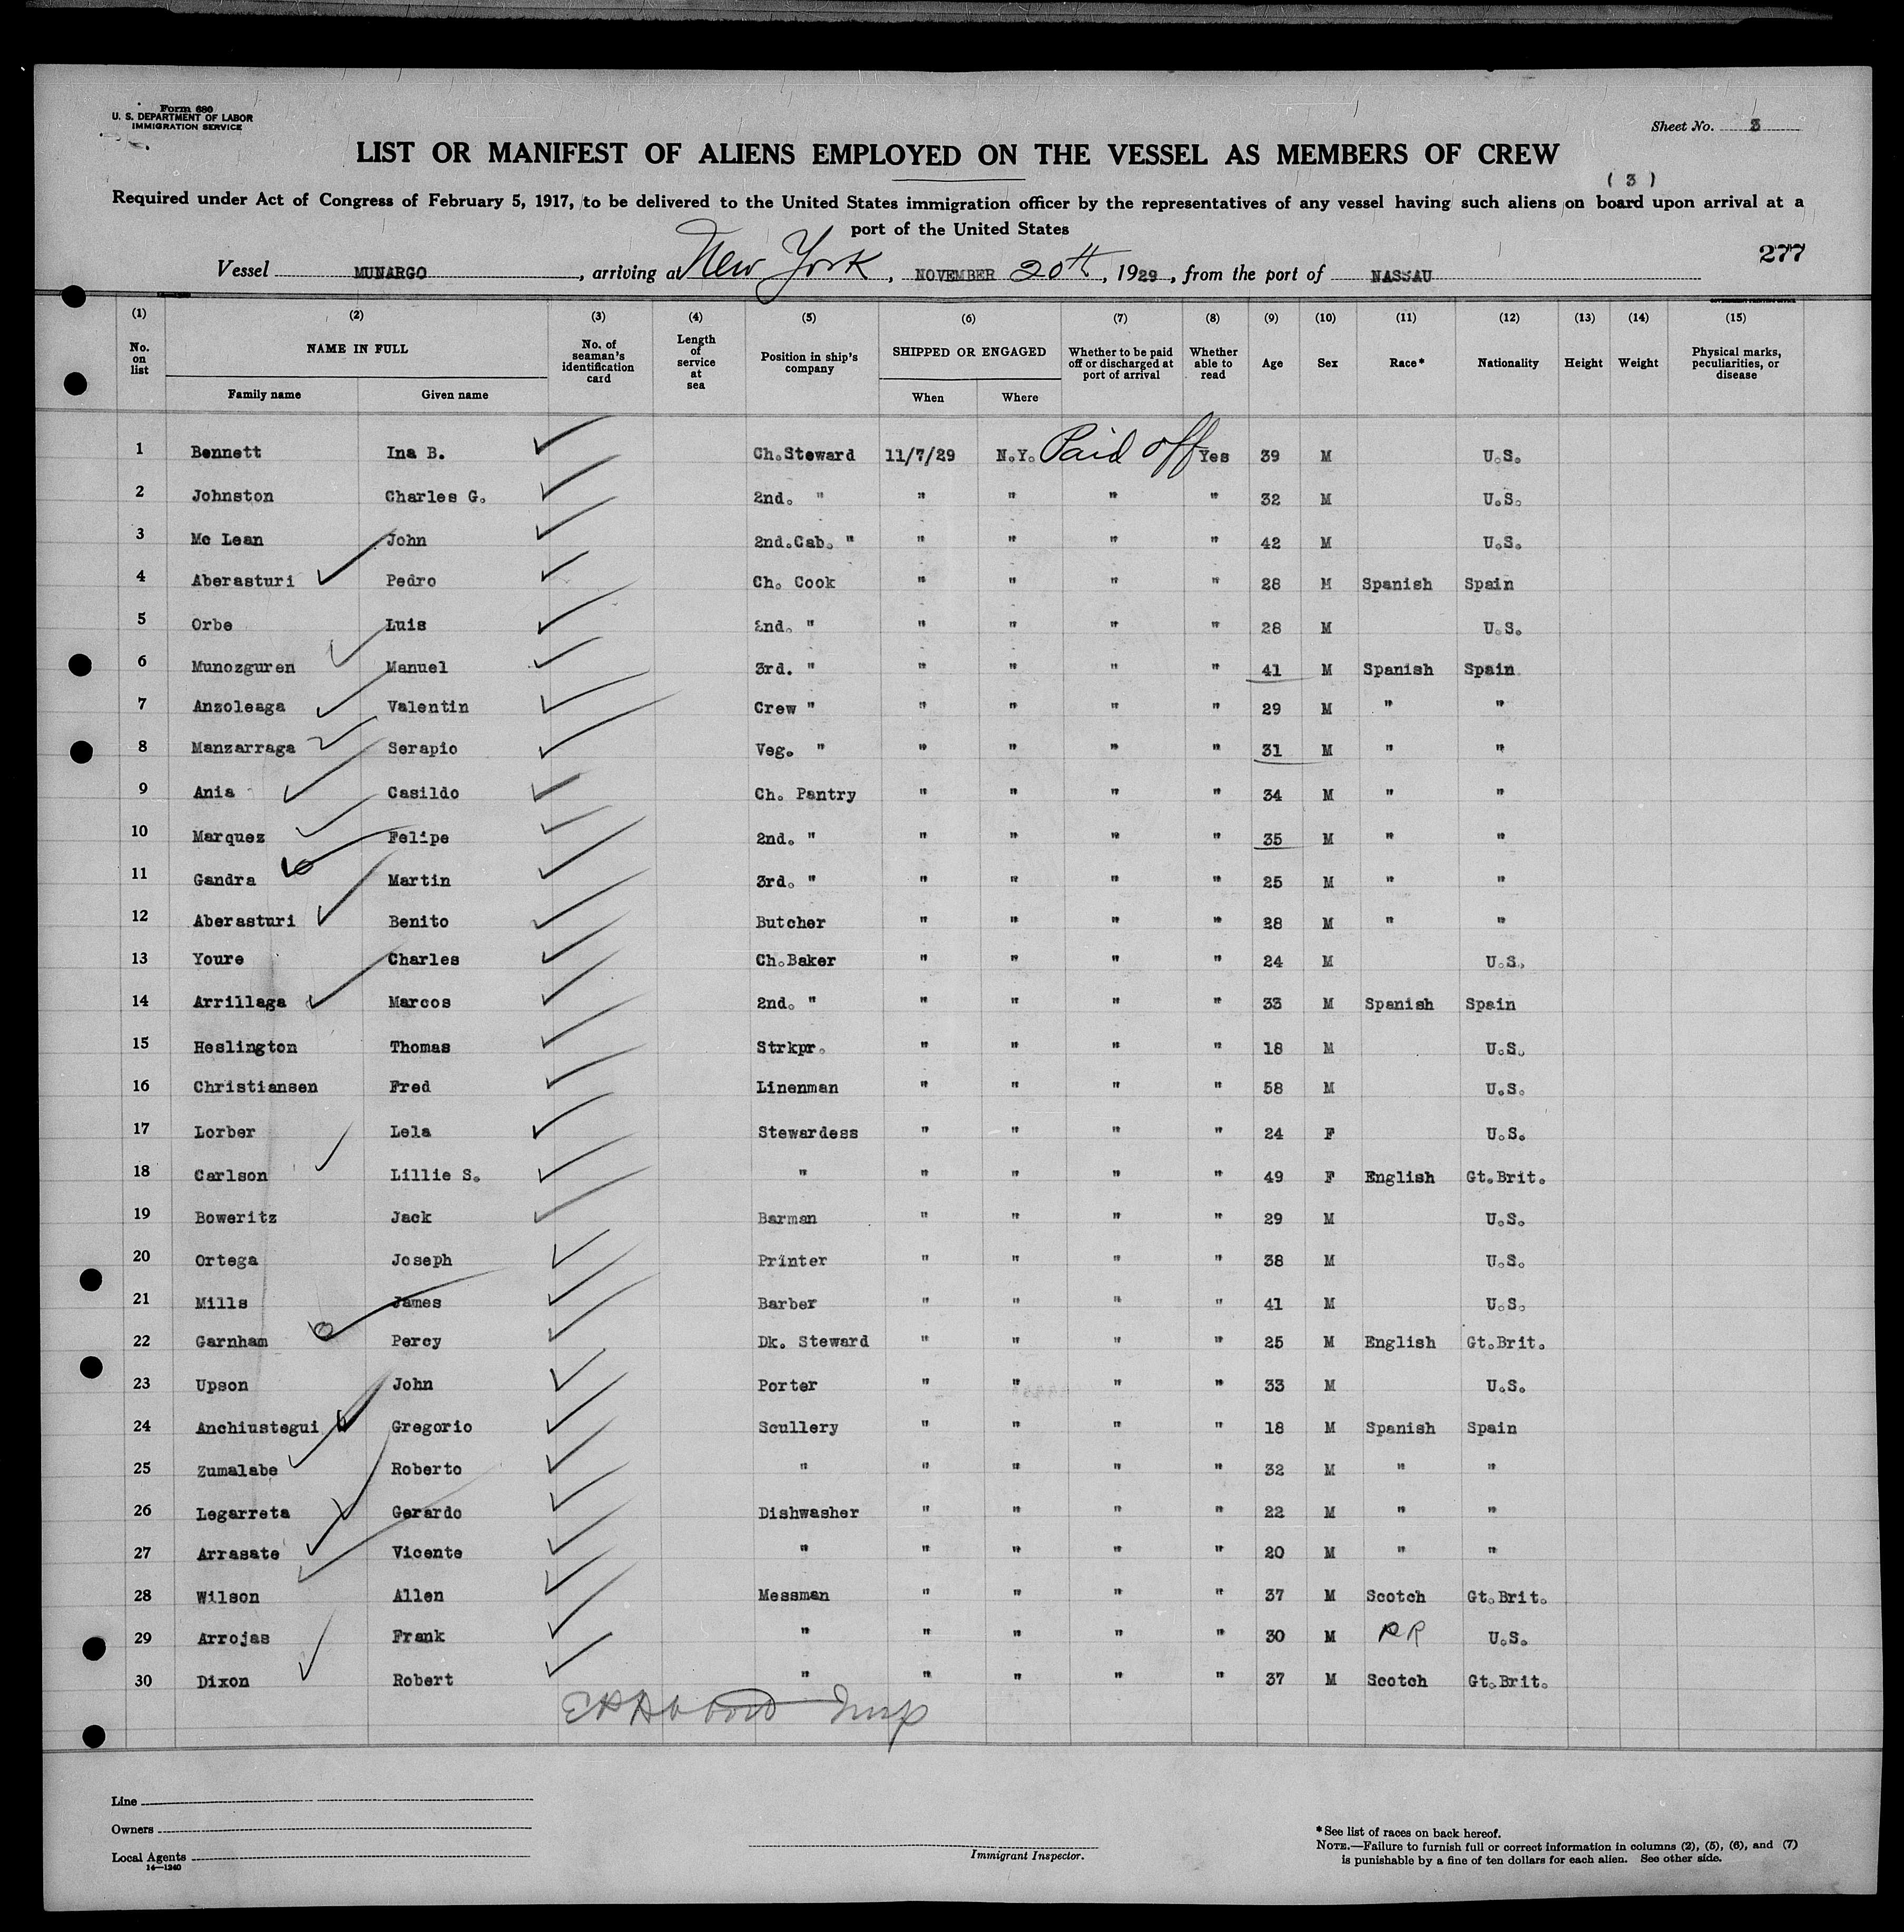 Form 680
U. S. DEPARTMENT OF LABOR
IMMIGRATION SERVICE
Sheet No. 3
LIST OR MANIFEST OF ALIENS EMPLOYED ON THE VESSEL AS MEMBERS OF CREW
( 3 )
Required under Act of Congress of February 5, 1917, to be delivered to the United States immigration officer by the representatives of any vessel having such aliens on board upon arrival at a
port of the United States
277
Vessel MUNARGO, arriving at New York, NOVEMBER 20th, 1929, from the port of NASSAU
(1) (2) (3) (4) (5) (6) (7) (8) (9) (10) (11) (12) (13) (14) (15)
No. on list NAME IN FULL Family name Given name No. of seaman's identification card Length of service at sea Position in ship's company SHIPPED OR ENGAGED When Where Whether to be paid off or discharged at port of arrival Whether able to read Age Sex Race* Nationality Height Weight Physical marks, peculiarities, or disease
1 Bennett Ina B. Ch.Steward 11/7/29 N.Y. Paid off Yes 39 M U.S.
2 Johnston Charles G. 2nd. " " " " " 32 M U.S.
3 Mc Lean John 2nd.Cab. " " " " " 42 M U.S.
4 Aberasturi Pedro Ch. Cook " " " " 28 M Spanish Spain
5 Orbe Luis 2nd. " " " " " 28 M U.S.
6 Munozguren Manuel 3rd. " " " " " 41 M Spanish Spain
7 Anzoleaga Valentin Crew " " " " " 29 M " "
8 Manzarraga Serapio Veg. " " " " " 31 M " "
9 Ania Casildo Ch. Pantry " " " " 34 M " "
10 Marquez Felipe 2nd. " " " " " 35 M " "
11 Gandra Martin 3rd. " " " " " 25 M " "
12 Aberasturi Benito Butcher " " " " 28 M " "
13 Youre Charles Ch.Baker " " " " 24 M U.S.
14 Arrillaga Marcos 2nd. " " " " " 33 M Spanish Spain
15 Heslington Thomas Strkpr. " " " " 18 M U.S.
16 Christiansen Fred Linenman " " " " 58 M U.S.
17 Lorber Lela Stewardess " " " " 24 F U.S.
18 Carlson Lillie S. " " " " " 49 F English Gt.Brit.
19 Boweritz Jack Barman " " " " 29 M U.S.
20 Ortega Joseph Printer " " " " 38 M U.S.
21 Mills James Barber " " " " 41 M U.S.
22 Garnham Percy Dk. Steward " " " " 25 M English Gt.Brit.
23 Upson John Porter " " " " 33 M U.S.
24 Anchiustegui Gregorio Scullery " " " " 18 M Spanish Spain
25 Zumalabe Roberto " " " " " 32 M " "
26 Legarreta Gerardo Dishwasher " " " " 22 M " "
27 Arrasate Vicente " " " " " 20 M " "
28 Wilson Allen Messman " " " " 37 M Scotch Gt.Brit.
29 Arrojas Frank " " " " " 30 M PR U.S.
30 Dixon Robert " " " " " 37 M Scotch Gt.Brit.
Line
Owners
Local Agents
14—1240
Immigrant Inspector.
*See list of races on back hereof.
NOTE.—Failure to furnish full or correct information in columns (2), (5), (6), and (7)
is punishable by a fine of ten dollars for each alien. See other side.